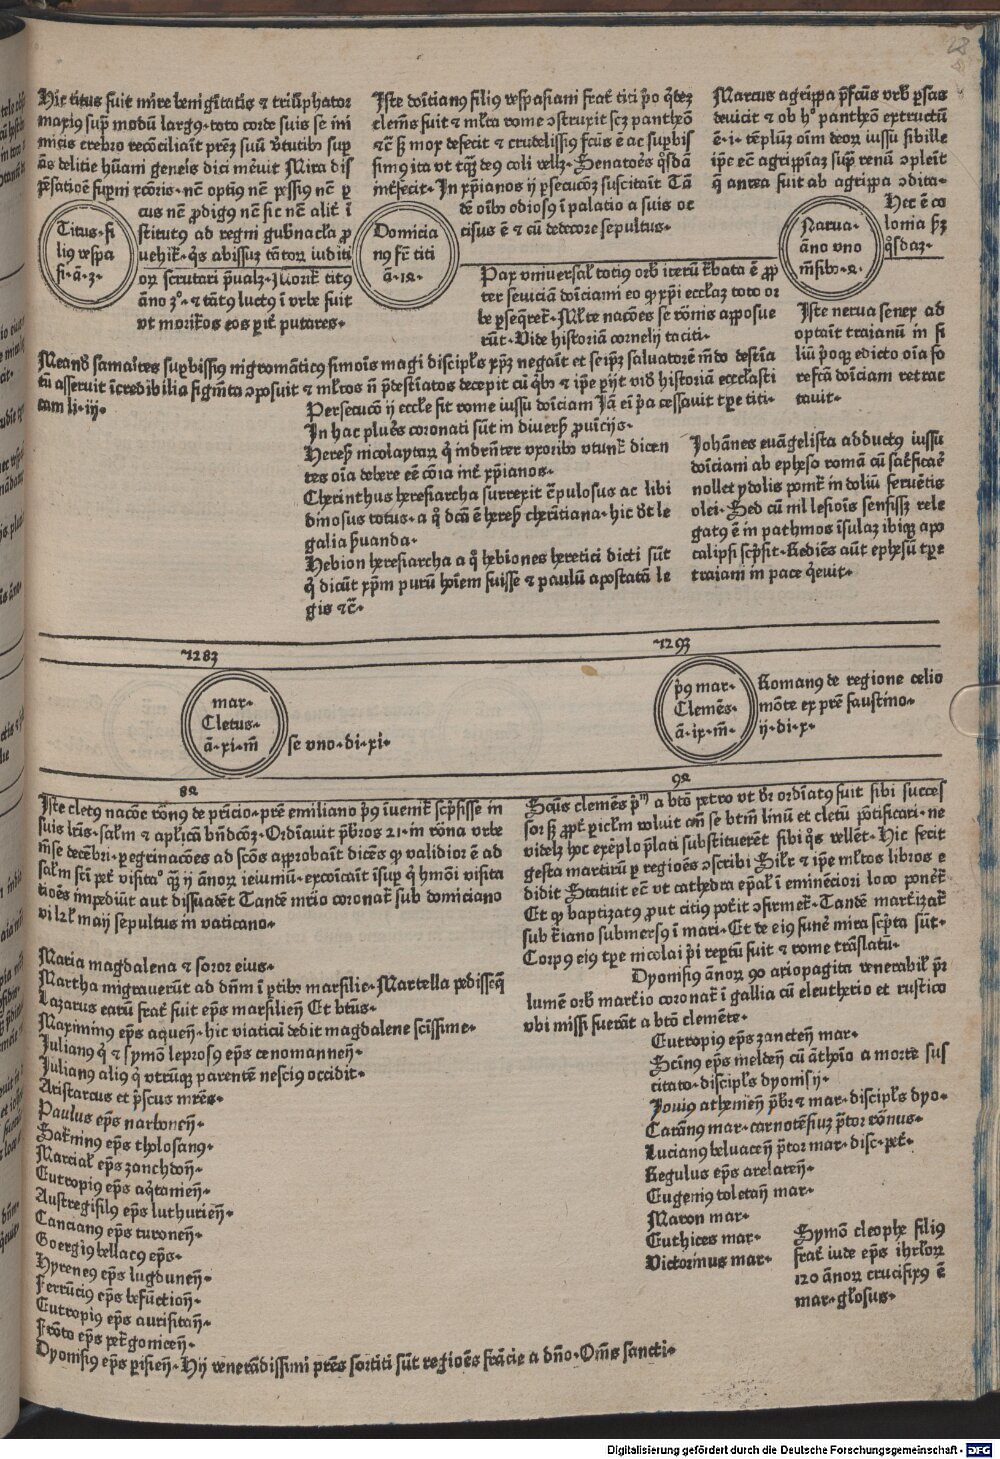 Hic titus fuit mire benignitatis ⁊ triūphator
maxiꝰ sup̄ modū largꝰ · toto corde suis se ini
micis crebro recōciliāit pr̄ez suū v̄tutibꝰ sup
ās delitie hūani gene᷑is dici me᷑uit Mira dis
p̄satioē sup̄ni rcōris · nē optiꝰ nē pessiꝰ nē p
cus nē ꝓdigꝰ nē sic nē alit᷑ ī
stitutꝰ ad regni gub̄nacła ꝓ
uehit᷑ · q̇s abissuꝫ tātoꝝ iuditi
oꝝ scrutari p̄ualꝫ · Morit᷑ titꝰ
āno ꝫ° · ⁊ tātꝰ luctꝰ ī vrbe fuit
vt morit᷑os eos p̱it᷑ putares ·
Titus · fi
liꝰ vespa
si · ā · ꝫ ·
Iste doītianꝰ filiꝰ vespasiani frat᷑ titi p̄o q̇deꝫ
clemēs fuit ⁊ młta rome ɔstruxit scꝫ panthēō
⁊c̄ sꝫ mox defecit ⁊ crudelissiꝰ fc̄us ē ac supbis
simꝰ ita vt tāqꝫ deꝰ coli vellꝫ · Senatoēs q̇sdā
int᷑fecit · In xp̄ianos ij ꝑsecucōꝫ suscitaīt Tā
dē oībꝰ odiosꝰ ī palatio a suis oc
cisus ē ⁊ cū dedecore sepultus ·
Domicia
nꝰ fr̄ titi
ā · 12 ·
Pax vniuersał totiꝰ orb̄ iterū t᷑bata ē ꝓp
ter seuiciā doīciani eo qꝙ xp̄i eccłaꝫ toto or
be ꝑseq̄ret᷑ · Młte nacōes se rōnis apposue
rūt · Vide historiā cornelij taciti ·
Marcus agrippa p̄fc̄us vrb̄ p̱sas
deuicit ⁊ ob hͦ panthēō extructū
ē · i · tēplūꝫ oīm deoꝝ iussu sibille
ip̄e eē agrippīaꝫ sup̄ renū ɔpleīt
q̄ antea fuit ab agrippa ɔdita ·
Hec ē co
lonia p̄ꝫ
q̇sdaꝫ ·
Narua ·
āno vno
m̄sibꝫ · 2 ·
Iste nerua senex ad
optaīt traianū in fi
liū p̄oqꝫ edicto oīa fo
refcā doīciam retrac
tauit ·
Meanđ samaites sup̱bissiꝰ nigromāticꝰ simoīs magi discipłs xp̄ꝫ negaīt et seip̄ꝫ saluatorē mūdo destīa
tū asseruit īcredibilia figm̄ta ɔposuit ⁊ młtos n̄ p̄destīatos decepit cū q̇bꝫ ⁊ ip̄e p̱ijt viđ historiā eccłasti
cam li · iij ·
Persecucō ij eccłe fit rome iussu doīciam Iā ei p̄a cessauit tp̱e titi ·
In hac plure᷑s coronati sūt in diuersꝫ ꝓuīcijs ·
Heresꝫ nicolaytaꝝ q̇ indrn̄ter vxoribꝫ vtunt᷑ dicen
tes oīa debere eē cōia int᷑ xp̄ianos ·
Cherinthus heresiarcha surrexit c̄pulosus ac libi
dinosus totus · a q̊ dc̄ū ē heresꝫ cherītiana · hic đt le
galia p̄uanda ·
Hebion heresiarcha a q̊ hebiones heretici dicti sūt
q̇ dicūt xp̄m purū hoīem fuisse ⁊ paulū apostatā le
gis ⁊c̄ ·
Iohānes euāgelista adductꝰ iussu
doīciani ab epheso romā cū sat᷑ficare᷑
nollet ydolis ponit᷑ in doliū feruētis
olei · Sed cū mł lesiois sensissꝫ rele
gatꝰ ē in pathmos īsulaꝫ ibiqꝫ apo
calipsi scp̄sit · Rediēs aūt ephesū tp̱e
traiani in pace q̇euit ·
1283
1293
mar ·
Cletus ·
ā · xi · m̄
se vno · di · xi ·
p̄ꝰ mar ·
Clemēs ·
ā · ix · m̄ ·
Romanꝰ de regione celio
mōte ex pr̄e faustino ·
ij · di · x ·
82
92
Iste cletꝰ nacōe rōnꝰ de pt̄icio · pr̄e emiliano p̄ꝰ īuenit᷑ scp̄sisse in
suis lr̄is · sałm ⁊ apłicā bn̄dcōꝫ · Ordīauit p̄bros 21 · in rōna vrbe
m̄se decēbri · peregrinacōes ad sc̄os approbaīt dicēs qꝙ validior ē ad
sałm sc̄i pet᷑ visita° qꝫ ij ānoꝝ ieiuniū · excoīcaīt īsup q̇ hmōi visita
tioēs impediūt aut dissuadēt Tandē mr̄tio coronat᷑ sub domiciano
vi kł maij sepultus in vaticano ·
Sc̄us clemēs p̄ᵐ a btō petro vt đr ordīatꝰ fuit sibi succes
sor sꝫ ꝓpt᷑ ꝑicłm voluit an̄ se btm̄ linū et cletū pōtificari · ne
videlꝫ hoc exēplo p̄lati substituerēt sibi q̇s vellēt · Hic fecit
gesta martirū p̱ regioēs ɔscribi Siłr ⁊ ip̄e młtos libros e
didit Statuit eciā vt cathedra epāł ī eminēciori loco ponēt᷑
Et qꝙ baptizatꝰ ꝓut citiꝰ pot᷑it ɔfirmet᷑ · Tandē mart᷑izat᷑
sub t᷑iano submersꝰ ī mari · Et de eiꝰ fune᷑ mira scp̄ta sūt ·
Corpꝰ eiꝰ tp̱e nicolai p̄i rep̱tū fuit ⁊ rome trāslatū ·
Dyonisiꝰ ānoꝝ 90 ariopagita venerabił p̄r
lumē orb̄ mart᷑io coronat᷑ ī gallia cū eleutherio et rustico
vbi missi fuerāt a btō clemēte ·
Maria magdalena ⁊ soror eius ·
Martha migrauerūt ad dn̄m ī p̱tibꝫ marsilie · Martella pedisseq̄
Lazarus earū frat᷑ fuit ep̄s marsilieñ Et btūs ·
Maximinꝰ ep̄s aqueñ · hic viaticū dedit magdalene sc̄issime ·
Iulianꝰ q̇ ⁊ symō leprosꝰ ep̄s cenomanneñ ·
Iulianꝰ aliꝰ q̇ vtrūqꝫ parentē nesciꝰ occidit ·
Aristarcus et p̄scus mr̄es ·
Paulus ep̄s narboneñ ·
Sat᷑ninꝰ ep̄s tholosanꝰ ·
Marciał ep̄s ꝫanchdoñ ·
Eutropiꝰ ep̄s aq̇tanieñ ·
Austregisilꝰ ep̄s luthurieñ ·
Cancianꝰ ep̄s turoneñ ·
Goergiꝰ bellacꝰ ep̄s ·
Hyreneꝰ ep̄s lugduneñ ·
Ferrūciꝰ ep̄s befūctioñ ·
Eutropiꝰ ep̄s aurisitañ ·
Frōto ep̄s pet᷑goniceñ ·
Dyonisiꝰ ep̄s p̱isieñ · Hij venerādissimi pr̄es sortiti sūt regioēs frācie a dn̄o · Om̄s sancti ·
Eutropiꝰ ep̄s ꝫancteñ mar ·
Sc̄inꝰ ep̄s meldeñ cū ātħōio a morte sus
citato · discipłs dyonisij ·
Iouiꝰ athenieñ p̄br ⁊ mar · discipłs dyo ·
Carānꝰ mar · carnotēsiuꝫ p̄tor rōnus ·
Lucianꝰ beluaceñ p̄tor mar · disc · pet᷑ ·
Regulus ep̄s arelateñ ·
Eugeniꝰ toletañ mar ·
Maron mar ·
Euthices mar ·
Victorinus mar ·
Symō cleophe filiꝰ
frat᷑ iude ep̄s ihrłoꝝ
120 ānoꝝ crucifixꝰ ē
mar · głosus ·
Digitalisierung gefördert durch die Deutsche Forschungsgemeinschaft - DFG